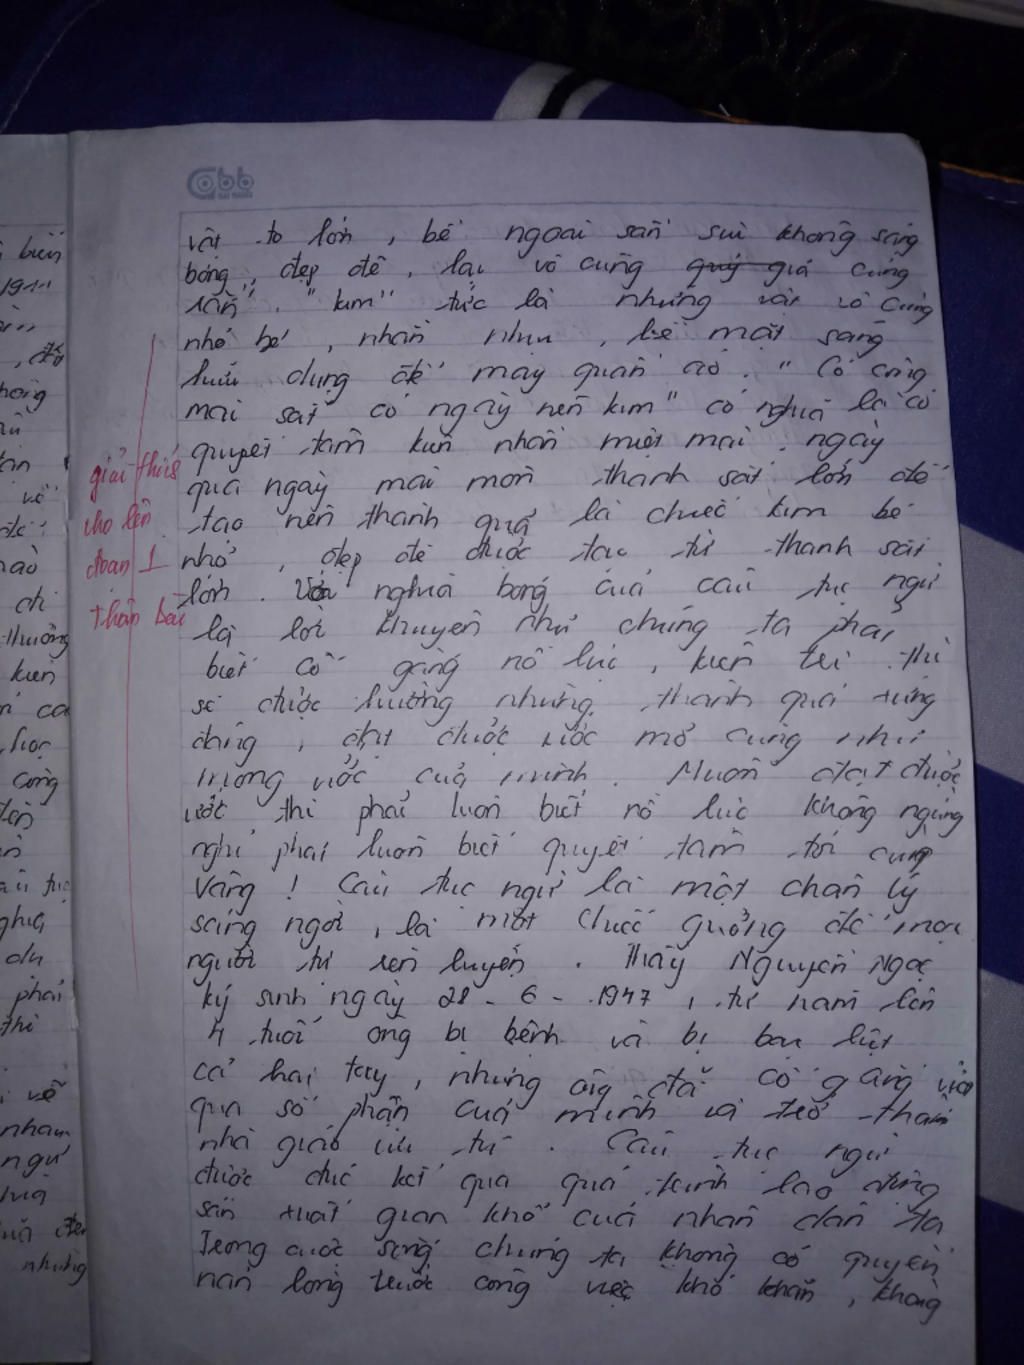 Cabb
vật to lớn, bề ngoài sần sùi không sáng
bóng, đẹp đẽ, lại vô cùng quý giá cứng
rắn". "kim" tức là những vật vô cùng
nhỏ bé, nhẵn nhụi, bề mặt sáng
hữu dụng để may quần áo. "Có công
mài sắt có ngày nên kim" có nghĩa là có
quyết tâm kiên nhẫn miệt mài ngày
qua ngày mài mòn thanh sắt lớn để
tạo nên thành quả là chiếc kim bé
nhỏ, đẹp đẽ được tạo từ thanh sắt
lớn. Với nghĩa bóng của câu tục ngữ
là lời khuyên nhủ chúng ta phải
biết cố gắng nỗ lực, kiên trì thì
sẽ được hưởng những thành quả xứng
đáng, đạt được ước mơ cũng như
mong ước của mình. Muốn đạt được
ước thì phải luôn biết nỗ lực không ngừng
nghỉ phải luôn biết quyết tâm tới cùng
Vâng! Câu tục ngữ là một chân lý
sáng ngời, là một chiếc gương để mọi
người tự rèn luyện. Thầy Nguyễn Ngọc
ký sinh ngày 28 - 6 - 1947, từ năm lên
4 tuổi ông bị bệnh và bị bại liệt
cả hai tay, nhưng ông đã cố gắng vượt
qua số phận của mình và trở thành
nhà giáo ưu tú. Câu tục ngữ
được đúc kết qua quá trình lao động
sản xuất gian khổ của nhân dân ta
Trong cuộc sống chúng ta không có quyền
nản lòng trước công việc khó khăn, không
giải thích
cho lên
đoạn 1
thân bài
biển
1911
, đó
hông
về
nào
chi
thường
kiên
ca
học
công
phải
thì
về
ngữ
những